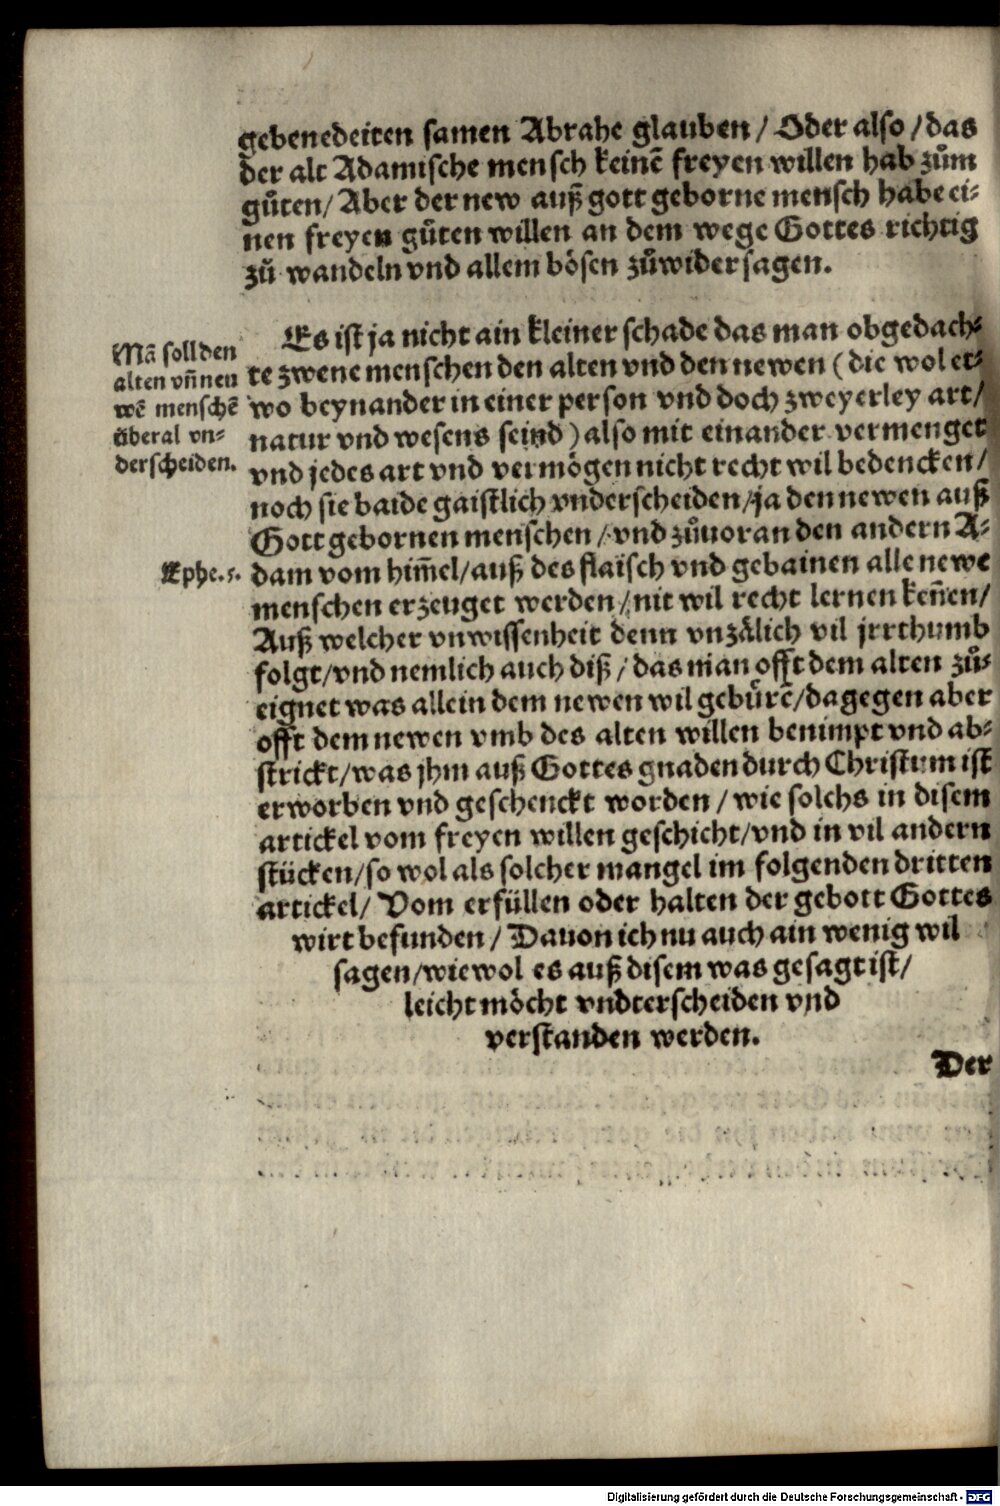 gebenedeiten samen Abrahe glauben / Oder also / das
der alt Adamische mensch keinē freyen willen hab zům
gůten / Aber der new auß gott geborne mensch habe ei-
nen freyen gůten willen an dem wege Gottes richtig
zů wandeln vnd allem bösen zůwidersagen.
Es ist ja nicht ain kleiner schade das man obgedach-
Mā soll den
alten vn̄ neu
wē menschē
überal vn-
derscheiden.
te zwene menschen den alten vnd den newen (die wol et-
wo beynander in einer person vnd doch zweyerley art /
natur vnd wesens seind) also mit einander vermenget
vnd jedes art vnd vermögen nicht recht wil bedencken /
noch sie baide gaistlich vnderscheiden / ja den newen auß
Gott gebornen menschen / vnd zůuoran den andern A-
Ephe.5.
dam vom him̄el / auß des flaisch vnd gebainen alle newe
menschen erzeuget werden / nit wil recht lernen ken̄en /
Auß welcher vnwissenheit denn vnzålich vil jrrthumb
folgt / vnd nemlich auch diß / das man offt dem alten zů-
eignet was allein dem newen wil gebůrē / dagegen aber
offt dem newen vmb des alten willen benimpt vnd ab-
strickt / was jhm auß Gottes gnaden durch Christum ist
erworben vnd geschenckt worden / wie solchs in disem
artickel vom freyen willen geschicht / vnd in vil andern
stücken / so wol als solcher mangel im folgenden dritten
artickel / Vom erfüllen oder halten der gebott Gottes
wirt befunden / Dauon ich nu auch ain wenig wil
sagen / wiewol es auß disem was gesagt ist /
leicht möcht vndterscheiden vnd
verstanden werden.
Der
Digitalisierung gefördert durch die Deutsche Forschungsgemeinschaft - DFG